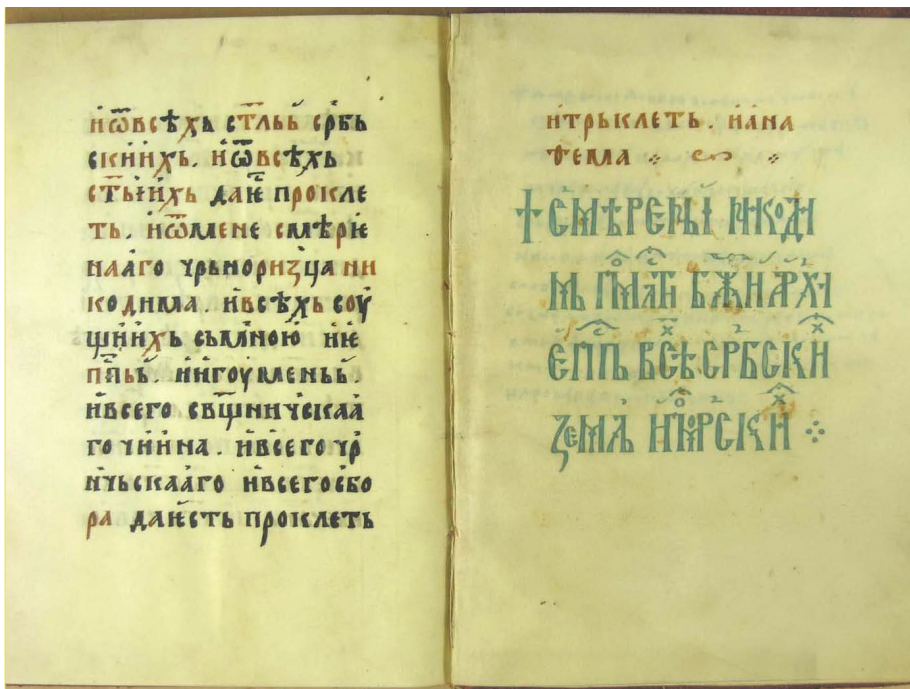 и ѿ всѣхь ст҃льь србь
скиихь. и ѿ всѣхь
ст҃ыихь да ѥ прокле
ть. и ѿ мене смѣрѥ
нааго чрьноризца ни
кодима. и всѣхь соу
щиихь сь мною и ѥ
пп҃ьь. и игоуменьь.
и всего сщ҃нничьскаа
го чиина. и всего чр
ньчьскааго и всего сбо
ра да ѥсть проклеть
и трьклеть. и ана
ѳема
† смѣрены никоди
мь
всѣ србски
землѧ и поморски